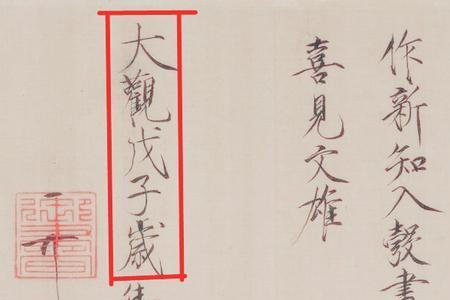 作新知入彀
喜見文雄
大觀戊子歲
御書